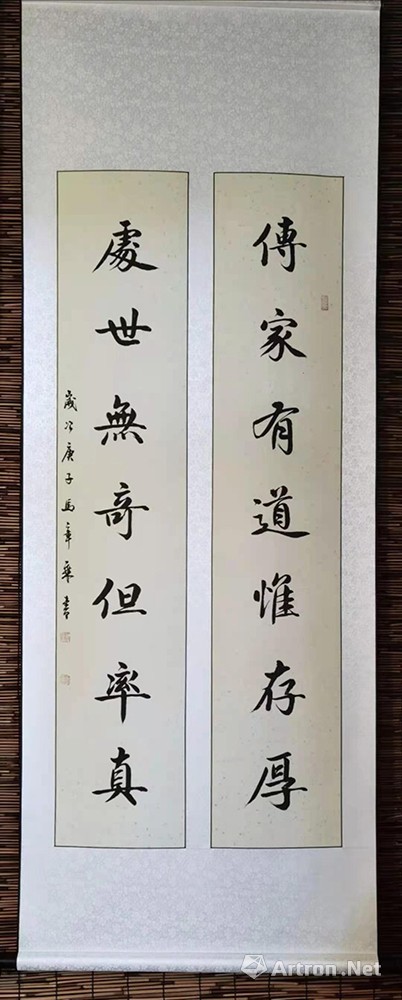 傳家有道惟存厚
處世無奇但率真
歲次庚子馬章乘書
Artron.Net